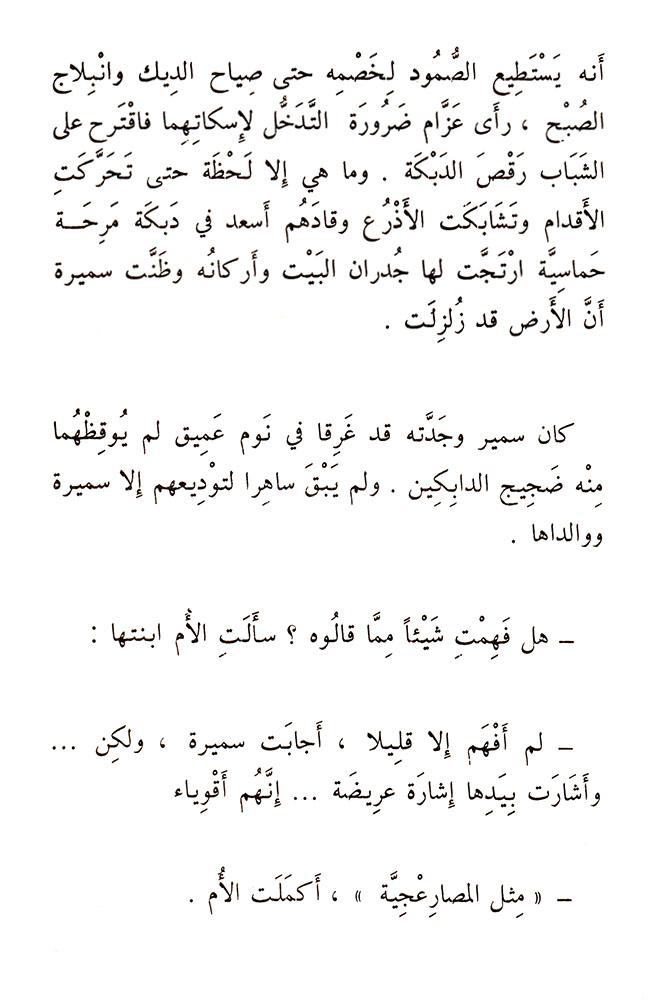 أَنه يَسْتَطِيع الصُّمُود لِخَصْمِه حتى صِياح الدِيك وانْبِلاج
الصُبْح ، رأَى عَزَّام ضَرُورَة التَّدَخُّل لإِسكاتِهِما فاقْتَرح على
الشَبَاب رَقْصَ الدَبْكَة . وما هي إلا لَحْظَة حتى تَحَرَّكَتِ
الأَقدام وتَشَابَكَت الأَذْرُع وقادَهُم أَسعد في دَبكَة مَرِحَـــة
حَماسِيَّة ارْتَجَّت لها جُدران البَيْت وأَركانُه وظَنَّت سميرة
أَنَّ الأَرض قد زُلزِلَت .
كان سمير وجَدَّته قد غَرِقا في نَوم عَمِيق لم يُوقِظْهُما
مِنْه ضَجِيج الدابِكِين . ولم يَبْقَ ساهِرا لتوْدِيعهم إلا سميرة
ووالداها .
ــ هل فَهِمْتِ شَيْئاً مِمَّا قالُوه ؟ سأَلَتِ الأُم ابنتها :
ــ لم أَفْهَم إلا قلِيلا ، أَجابَت سميرة ، ولكِن ...
وأَشَارَت بِيَدِها إشارَة عرِيضَة ... إنَّهُم أَقْوِياء
ــ « مِثل المصارِعْجِيَّة » ، أَكمَلَت الأُم .